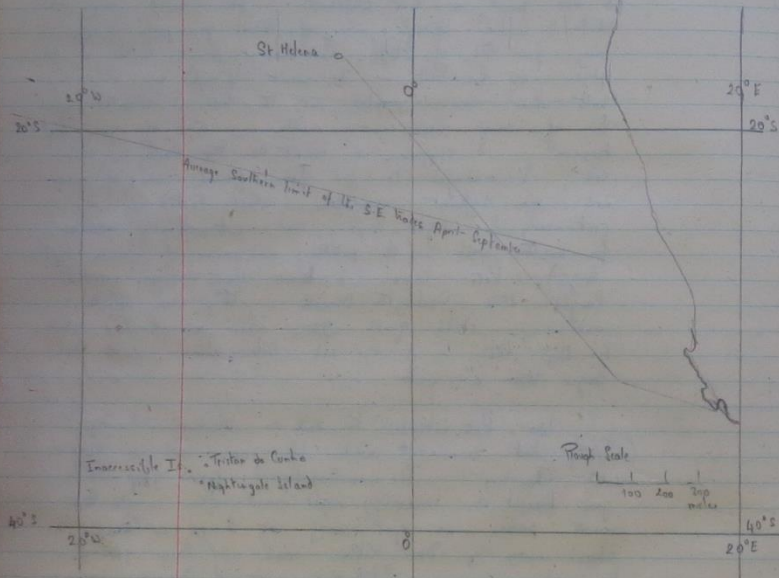 St Helena
20°W
0°
20°E
20°S
20°S
Average Southern limit of the S.E Trades April-September
Rough Scale
Inaccessible Is.
Tristan da Cunha
Nightingale Island
100 200 300
miles
40°S
40°S
20°W
0°
20°E